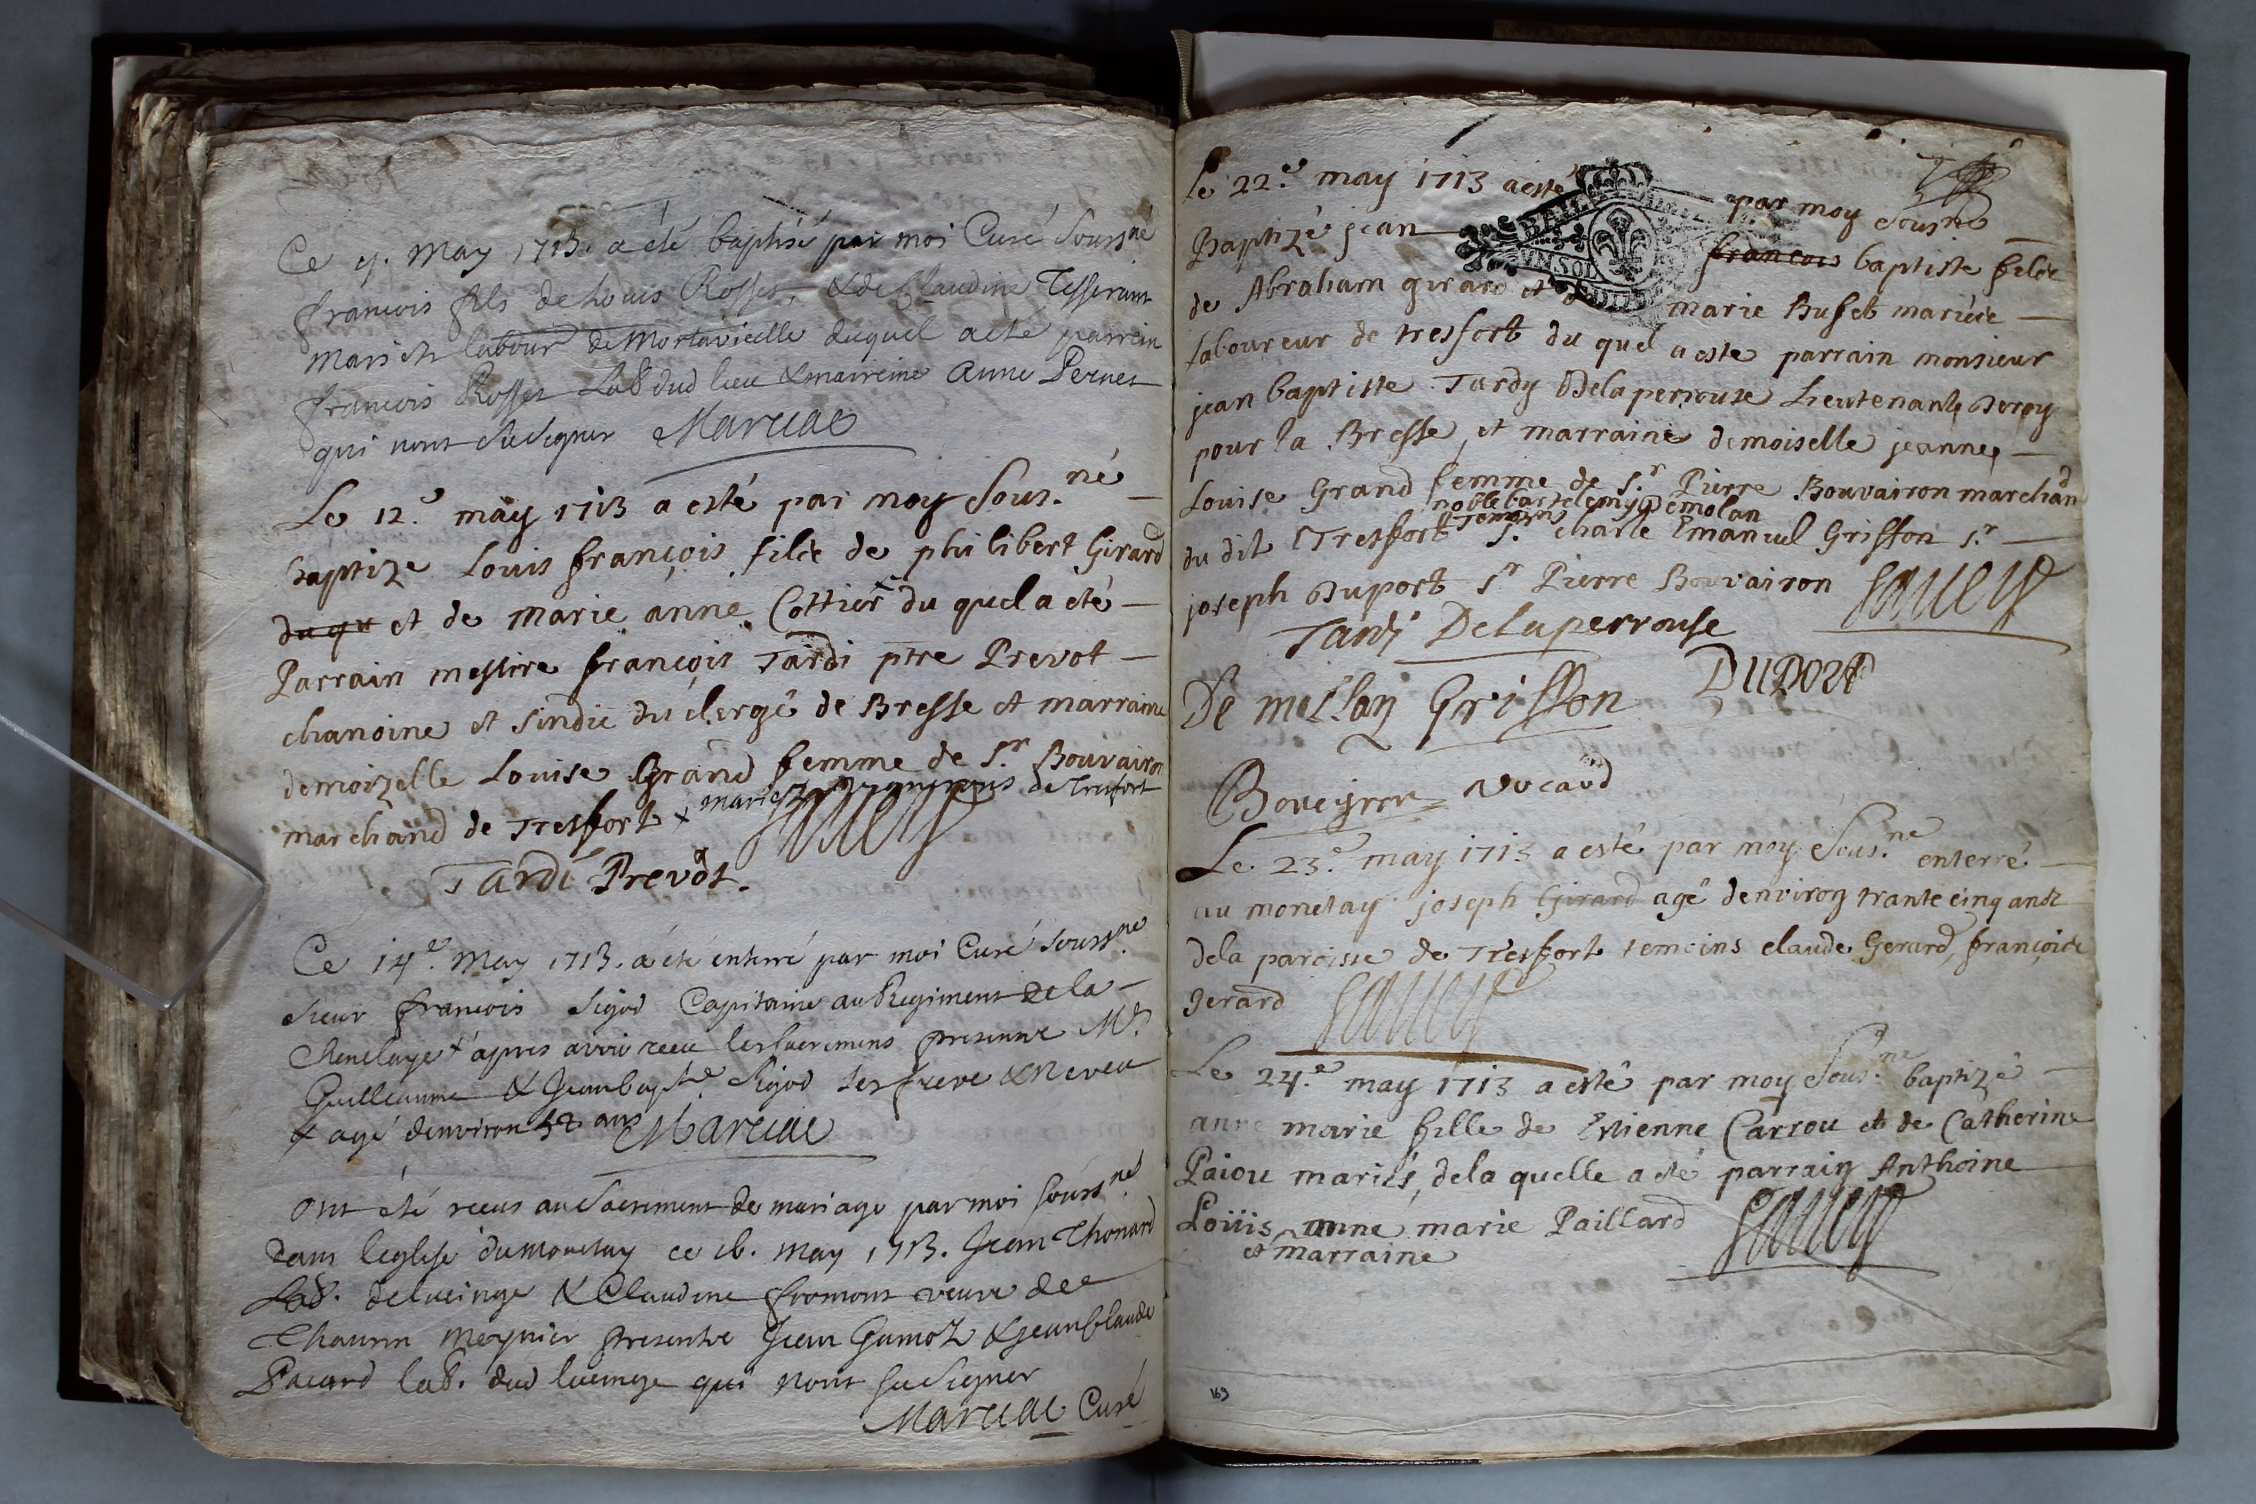 Ce 9. May 1713. a été baptisé par moi Curé Souss.né
francois fils de Louis Rosset, & de Claudine Tesserant
mariés labour. de Montavieille duquel a été parrein
francois Rosset Lab. dud lieu & maireine Anne Pernet
qui nont sceu signer Marcial
Le 12.e may 1713 a esté par moy Sous.né —
baptize Louis françois filie de philibert Girard
du qu et de marie anne Cottier x du quel a été —
Parrain messire françois Tardi ptre Prevot —
chanoine et sindic du clergé de Bresse et marraine
demoizelle Louise Grand femme de S.r Bouvairon
marchand de Tresfort x mariez vignerons de Tresfort
Tardi Prevôt.
Ce 14.e May 1713. a été enterré par moi Curé souss.né
sieur francois Rigod Capitaine au Regiment de la —
Chenelaye + apres avoir receu les sacremens presence Mr.
Guilleaume & Jean bapt.e Rigod ses frere & neveu
+ agé denviron 52 ans Marcial
Ont été receus au Sacrement de mariage par moi souss.né
dans leglise du Monetay ce 16. May 1713. Jean Thonard
Lab. de lucinge & Claudine fromont veuve de
Thaurin Meynier presente Jean Gamot & Jean Claude
Pacard lab. dud lucinge qui nont sceu signer
Marcial Curé
Le 22.e may 1713 a esté par moy Sous.né
Baptizé jean francois baptiste filie
de Abraham girard et de marie Bufet mariéie —
laboureur de tresfort du quel a este parrain monsieur
jean baptiste Tardy Delaperrouse Lieutenant De roy
pour la Bresse, et marraine demoiselle jeanne, —
Louise Grand femme de S.r Pierre Bouvairon marchand
noble bartelemy Demolan
du dit Tresfort Temoins S.r charle Emanuel Griffon S.r —
joseph Duport S.r Pierre Bouvairon
Tardi Delaperrouse
De mollan Griffon DUPORT
Boveyron Nocard
Le 23.e may 1713 a esté par moy Sous.né enterré —
au monetay joseph Girard agé denviron trante cinq ans
dela paroisse de Tresfort temoins claude Gerard, françois
Gerard
Le 24.e may 1713 a esté par moy Sous.né baptizé —
anne marie fille de Estienne Carrou et de Catherine
Paiou mariés, dela quelle a eté parrain Anthoine
Loüis anne marie Paillard
et marraine
163